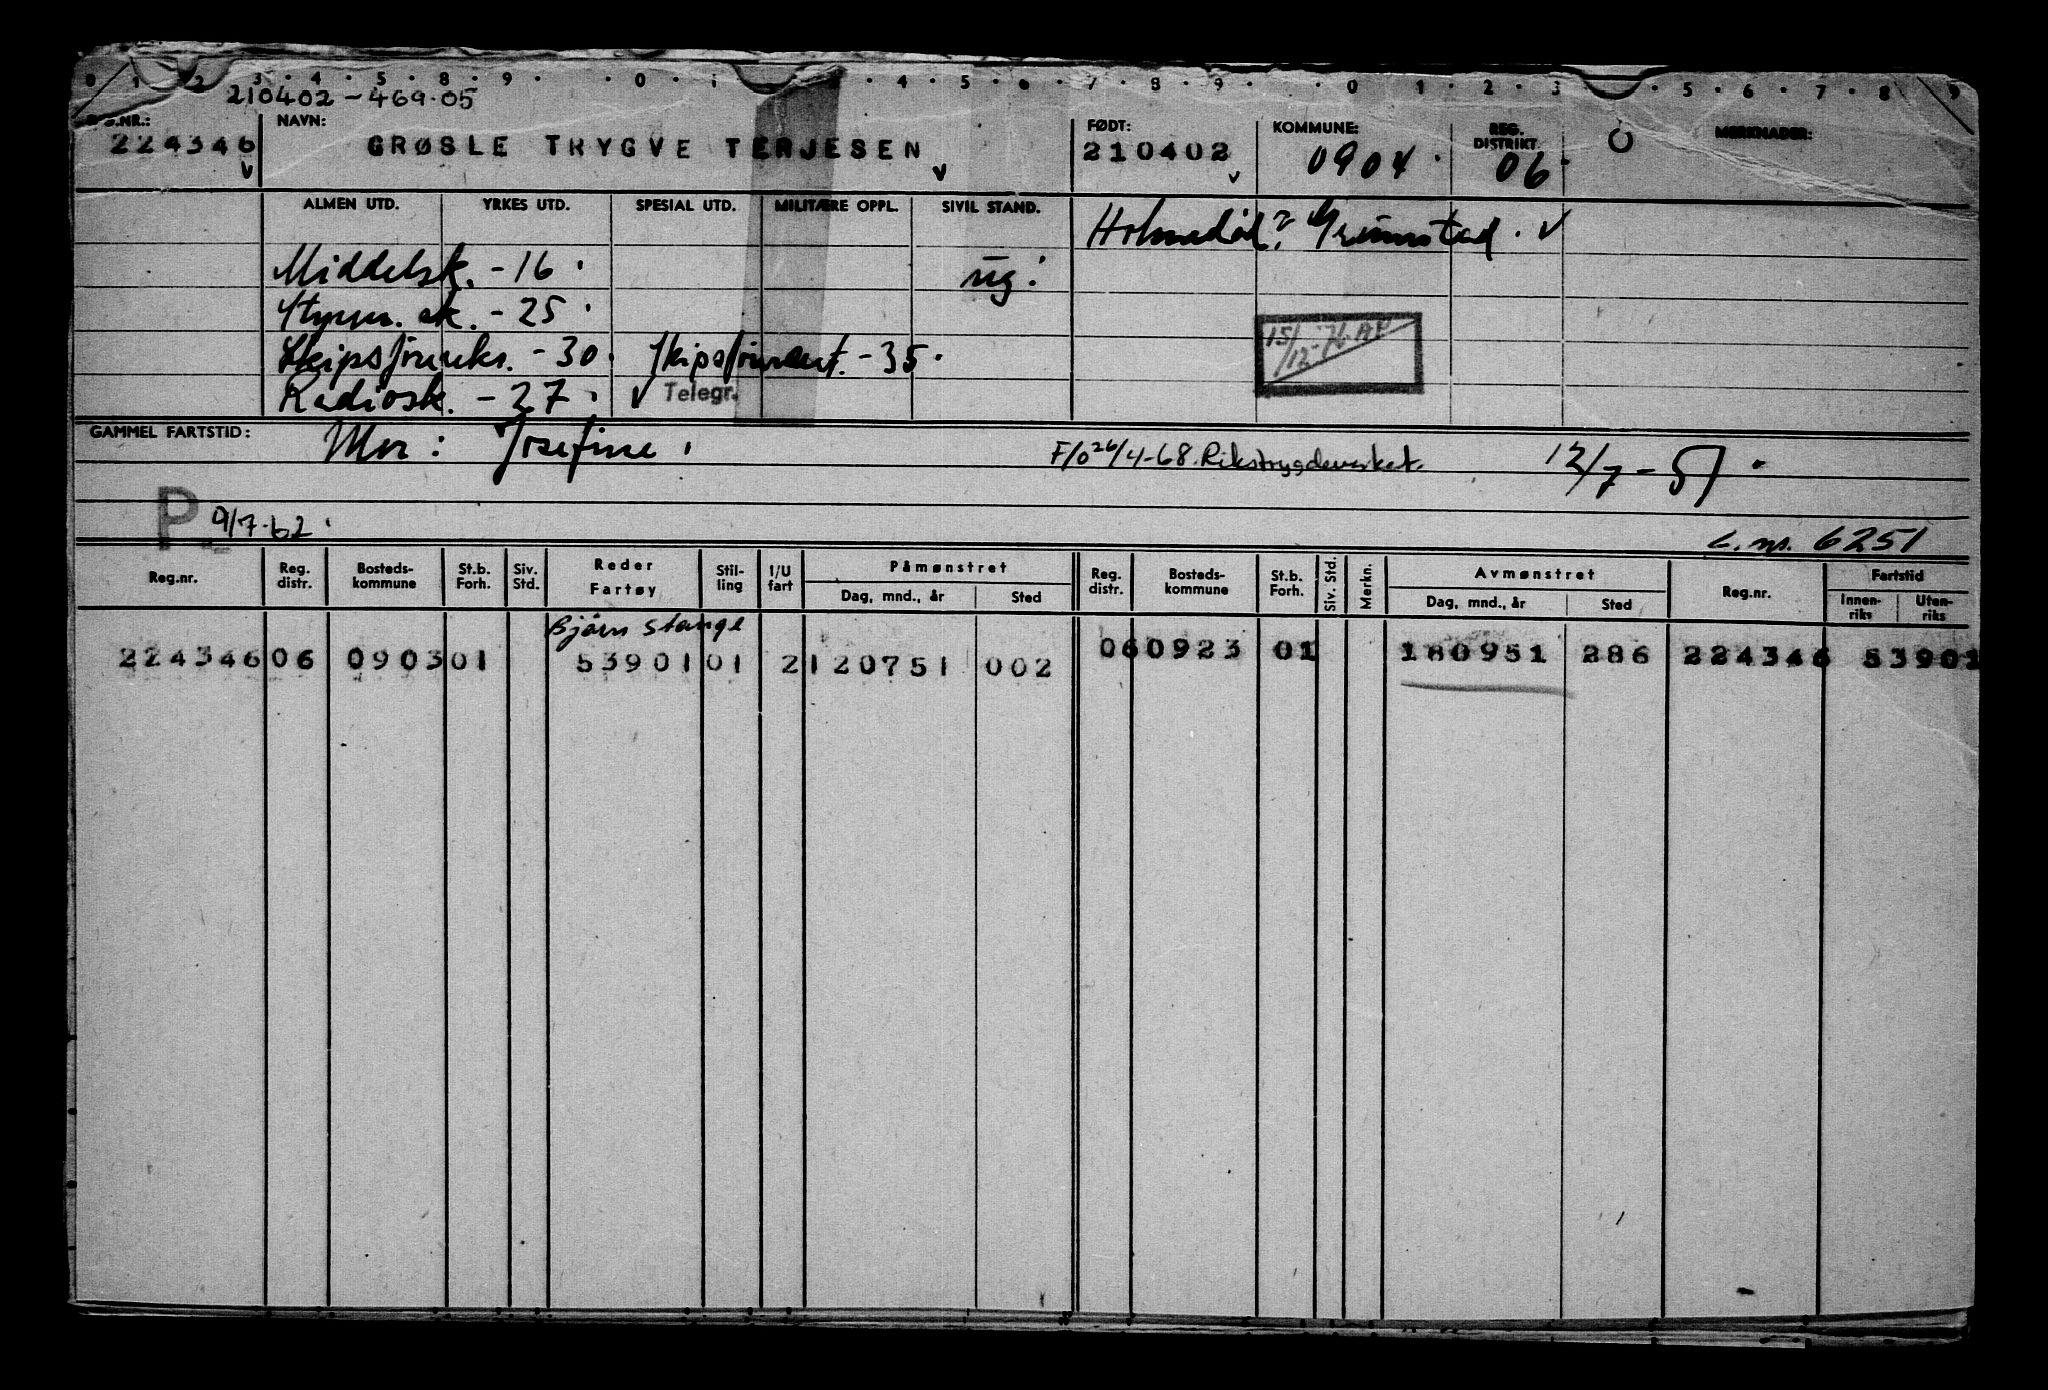 0 1 2 3 · 4 · 5 · 8 · 9 · · 0 · 1 3 · 4 · 5 · 6 · 7 · 8 · 9 · · 0 1 · 2 · 3 · 5 · 6 · 7 · 8 · 9
210402 - 469.05
NR.: NAVN: FØDT: KOMMUNE: REG. DISTRIKT MERKNADER:
224346 GRØSLE TRYGVE TERJESEN 210402 0904 06
ALMEN UTD. YRKES UTD. SPESIAL UTD. MILITÆRE OPPL. SIVIL STAND.
Grimstad.
Middelsk. - 16 ug.
sk. - 25
15/12-76 AP
- 30 - 35
Radiosk. - 27 Telegr.
GAMMEL FARTSTID: Mor: Josefine
F/o 26/4-68. Rikstrygdeverket. 12/7-51
P 9/7-62
L. nr. 6251
Reg.nr. Reg. distr. Bosteds-kommune St.b. Forh. Siv. Std. Reder Fartøy Stil-ling I/U fart Påmønstret Dag, mnd., år Sted Reg. distr. Bosteds-kommune St.b. Forh. Siv. Std. Merkn. Avmønstret Dag, mnd., år Sted Reg.nr. Fartstid Innen-riks Uten-riks
Bjørn Stange
224346 06 0903 01 53901 01 2 120751 002 06 0923 01 180951 286 224346 53901